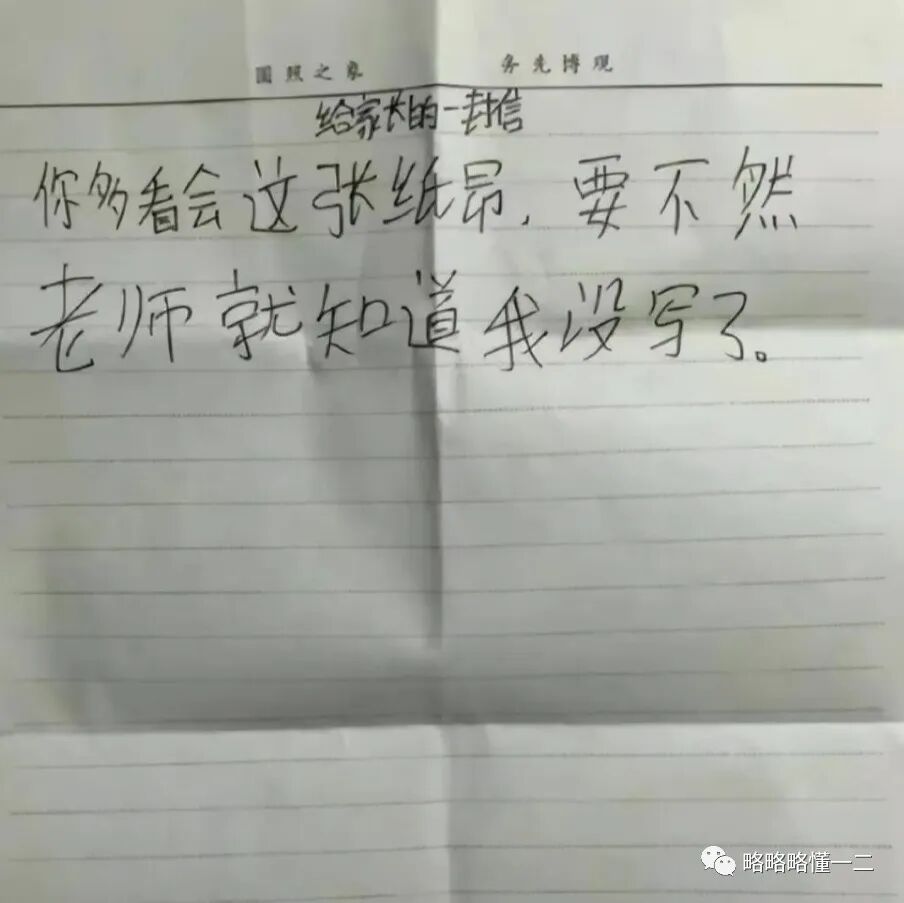 圆照之象 务先博观
给家长的一封信
你多看会这张纸昂，要不然
老师就知道我没写了。
略略略懂一二